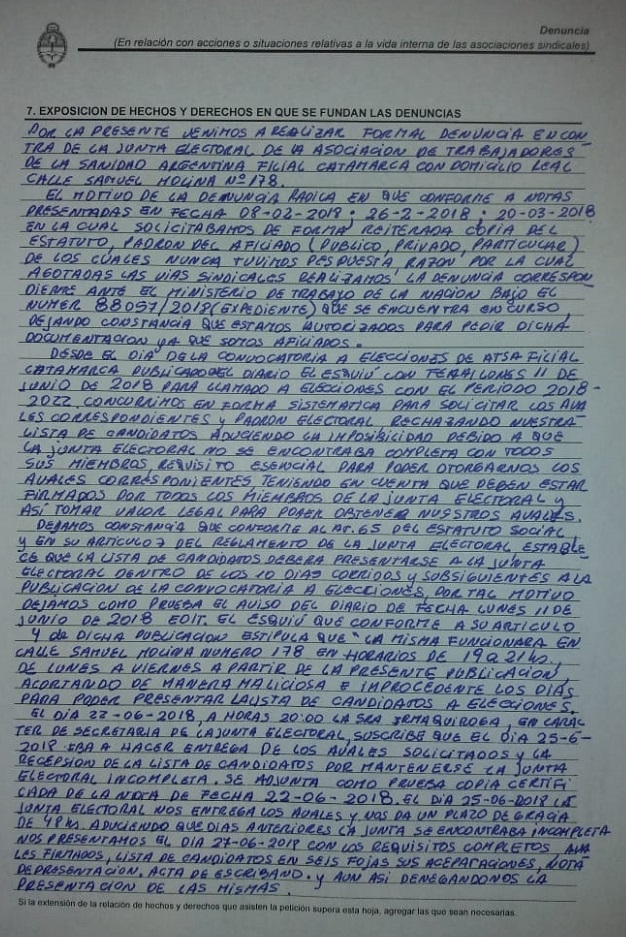 Denuncia
(En relación con acciones o situaciones relativas a la vida interna de las asociaciones sindicales)
7. EXPOSICION DE HECHOS Y DERECHOS EN QUE SE FUNDAN LAS DENUNCIAS
POR LA PRESENTE VENIMOS A REALIZAR FORMAL DENUNCIA EN CON_
TRA DE LA JUNTA ELECTORAL DE LA ASOCIACION DE TRABAJADORES
DE LA SANIDAD ARGENTINA FILIAL CATAMARCA CON DOMICILIO LEAL
CALLE SAMUEL MOLINA Nº 178.
EL MOTIVO DE LA DENUNCIA RADICA EN QUE CONFORME A NOTAS
PRESENTADAS EN FECHA 08-02-2018 · 26-2-2018 · 20-03-2018
EN LA CUAL SOLICITABAMOS DE FORMA REITERADA COPIA DEL
ESTATUTO, PADRON DEL AFILIADO (PUBLICO, PRIVADO, PARTICULAR)
DE LOS CUALES NUNCA TUVIMOS RESPUESTA RAZON POR LA CUAL
AGOTADAS LAS VIAS SINDICALES REALIZAMOS LA DENUNCIA CORRESPON
DIENTE ANTE EL MINISTERIO DE TRABAJO DE LA NACION BAJO EL
NUMER 88057/2018 (EXPEDIENTE) QUE SE ENCUENTRA EN CURSO,
DEJANDO CONSTANCIA QUE ESTAMOS AUTORIZADOS PARA PEDIR DICHA
DOCUMENTACION YA QUE SOMOS AFILIADOS.
DESDE EL DIA DE LA CONVOCATORIA A ELECCIONES DE ATSA FILIAL
CATAMARCA PUBLICADO DEL DIARIO EL ESQUIÚ CON FECHA LUNES 11 DE
JUNIO DE 2018 PARA LLAMADO A ELECCIONES CON EL PERIODO 2018-
2022. CONCURRIMOS EN FORMA SISTEMATICA PARA SOLICITAR LOS AVA
LES CORRESPONDIENTES y PADRON ELECTORAL RECHAZANDO NUESTRA
LISTA DE CANDIDATOS ADUCIENDO LA IMPOSIBILIDAD DEBIDO A QUE
LA JUNTA ELECTORAL NO SE ENCONTRABA COMPLETA CON TODOS
SUS MIEMBROS, REQUISITO ESENCIAL PARA PODER OTORGARNOS LOS
AVALES CORRESPONIENTES, TENIENDO EN CUENTA QUE DEBEN ESTAR
FIRMADOS POR TODOS LOS MIEMBROS DE LA JUNTA ELECTORAL y
ASI TOMAR VALOR LEGAL PARA PODER OBTENER NUESTROS AVALES.
DEJAMOS CONSTANCIA QUE CONFORME AL AT. 65 DEL ESTATUTO SOCIAL
y EN SU ARTICULO 7 DEL REGLAMENTO DE LA JUNTA ELECTORAL ESTABLE
CE QUE LA LISTA DE CANDIDATOS DEBERA PRESENTARSE A LA JUNTA
ELECTORAL DENTRO DE LOS 10 DIAS CORRIDOS y SUBSIGUIENTES A LA
PUBLICACION DE LA CONVOCATORIA A ELECCIONES, POR TAL MOTIVO
DEJAMOS COMO PRUEBA EL AVISO DEL DIARIO DE FECHA LUNES 11 DE
JUNIO DE 2018 EDIT. EL ESQUIÚ QUE CONFORME A SU ARTICULO
4 de DICHA PUBLICACION ESTIPULA QUE "LA MISMA FUNCIONARA EN
CALLE SAMUEL MOLINA NUMERO 178 EN HORARIOS DE 19 a 21 hs.
DE LUNES A VIERNES A PARTIR DE LA PRESENTE PUBLICACION,
ACORTANDO DE MANERA MALICIOSA E IMPROCEDENTE LOS DIAS
PARA PODER PRESENTAR LA LISTA DE CANDIDATOS A ELECCIONES.
EL DIA 22-06-2018, A HORAS 20:00 LA SRA IRMA QUIROGA, EN CARAC
TER DE SECRETARIA DE LA JUNTA ELECTORAL, SUSCRIBE QUE EL DIA 25-6-
2018 IBA A HACER ENTREGA DE LOS AVALES SOLICITADOS y LA
RECEPSION DE LA LISTA DE CANDIDATOS POR MANTENERSE LA JUNTA
ELECTORAL INCOMPLETA. SE ADJUNTA COMO PRUEBA COPIA CERTIFI
CADA DE LA NOTA DE FECHA 22-06-2018. EL DIA 25-06-2018 LA
JUNTA ELECTORAL NOS ENTREGA LOS AVALES y NOS DA UN PLAZO DE GRACIA
DE 48 hs ADUCIENDO QUE DIAS ANTERIORES LA JUNTA SE ENCONTRABA INCOMPLETA
NOS PRESENTAMOS EL DIA 27-06-2018 CON LOS REQUISITOS COMPLETOS AVA
LES FIRMADOS, LISTA DE CANDIDATOS EN SEIS FOJAS SUS ACEPTACIONES, NOTA
DE PRESENTACION, ACTA DE ESCRIBANO. y AUN ASI DENEGANDONOS LA
PRESENTACION DE LAS MISMAS.
Si la extensión de la relación de hechos y derechos que asisten la petición supera esta hoja, agregar las que sean necesarias.